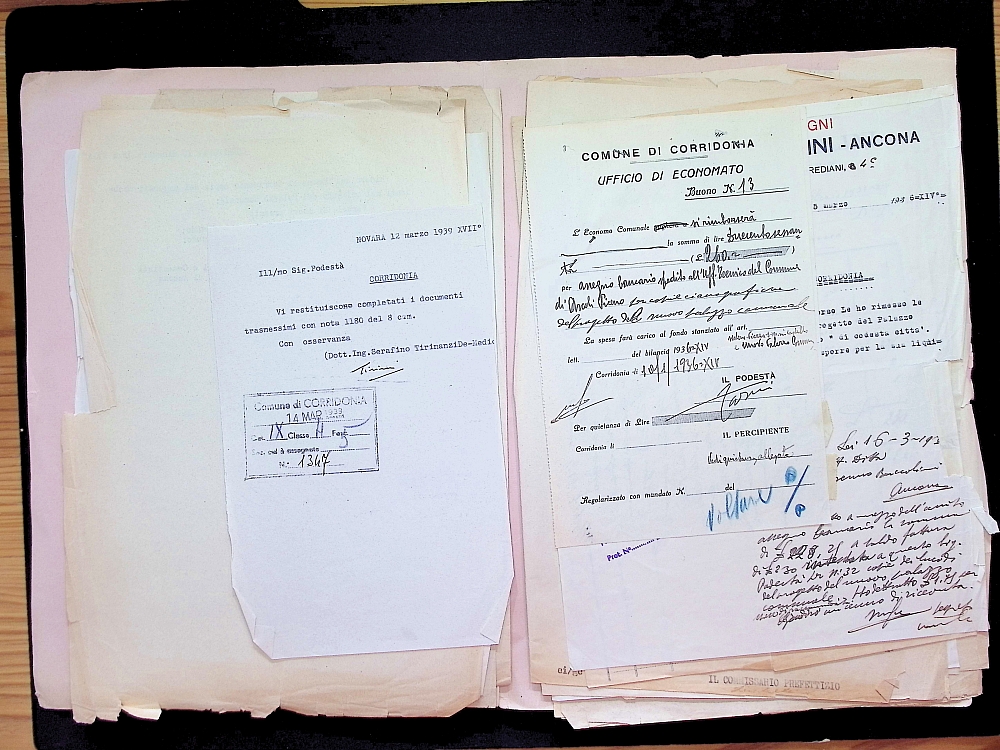 NOVARA 12 marzo 1939 XVII°
Ill/no Sig.Podestà
CORRIDONIA
Vi restituiscono completati i documenti
trasmessimi con nota 1180 del 8 c.m.
Con osservanza
(Dott.Ing.Serafino TirinanziDe-Medic
Comune di CORRIDONIA
14 MAR 1939
Cat. IX Classe II Fasc. 5
N. 1347
COMUNE DI CORRIDONIA
UFFICIO DI ECONOMATO
Buono N. 13
L' Economo Comunale si rimborserà
la somma di lire
(L. 260.
per assegno bancario spedito all'Uff. Tecnico del Comune
di Ascoli Piceno per copie cianografiche
del progetto del nuovo palazzo comunale
La spesa farà carico al fondo stanziato all' art.
lett. del bilancio 1936=XIV
Corridonia li 1936=XIV
IL PODESTÀ
Per quietanza di Lire
Corridonia li
IL PERCIPIENTE
Vedi quietanza allegata
Regolarizzato con mandato N. del
Voltare
GNI
INI - ANCONA
REDIANI,
marzo 193 6=XIV°
CORRIDONIA
Le ho rimesso le
ogetto del Palazzo
" di codesta citta'.
sporre per la sua liqui=
Prot. N°
Lei 16-3-193
Ancona
a mezzo dell'unito
assegno bancario la somma
di £ 228, a saldo fattura
di £ 230 intestata a questo Sig.
Podestà per N° 32 copie dei lucidi
del progetto del nuovo palazzo
comunale.
IL COMMISSARIO PREFETTIZIO